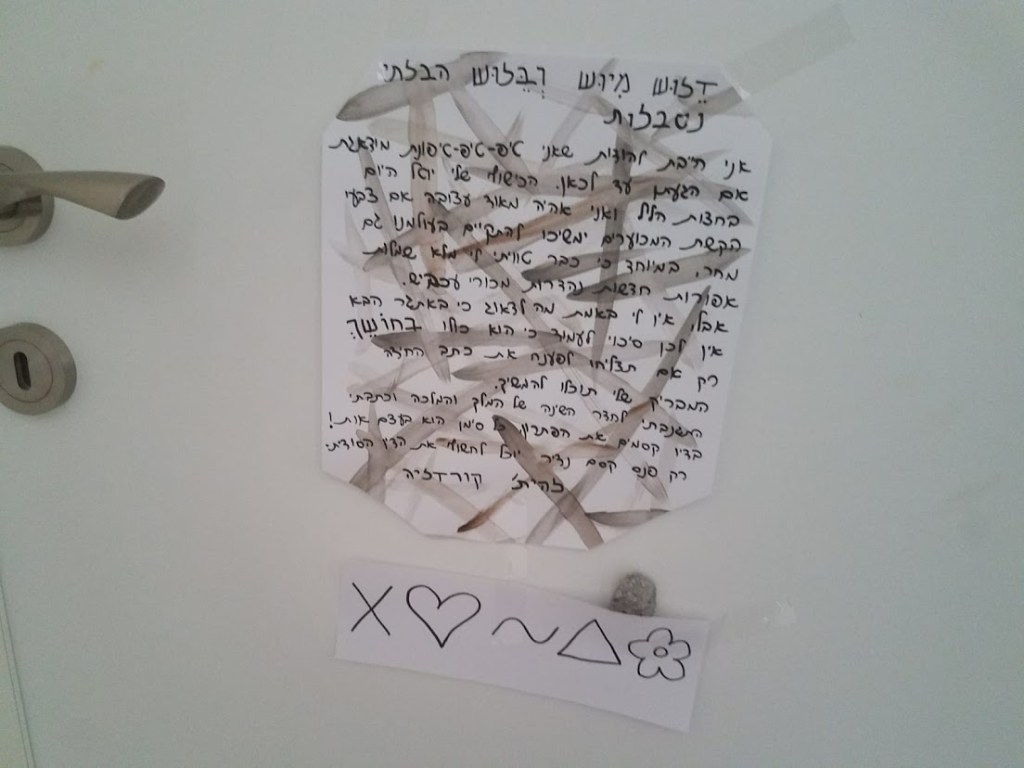 דֵלוּש מִיוּש וְבֵלוּש הבלתי
נסבלות
אני חייבת להודות שאני טיפ-טיפ-טיפונת מודאגת
אם הגעתן עד לכאן. הכישוף שלי יחול היום
בחצות הליל ואני אהיה מאוד עצובה אם צבעי
הקשת המכוערים ימשיכו להתקיים בעולמנו גם
מחר, במיוחד כי כבר טוויתי לי מלא שמלות
אפורות חדשות ונהדרות מכורי עכביש.
אבל, אין לי באמת מה לדאוג כי באתגר הבא
אין לכן סיכוי לעמוד כי הוא כולו בחוֹשֶךְ
רק אם תצליחו לפענח את כתב החידה
המבריק שלי תוכלו להמשיך.
התגנבתי לחדר השינה של המלך והמלכה וכתבתי
בדיו קסמים את הפתרון כל סימן הוא בעצם אות!
רק פנס קסם נדיר יוכל לחשוף את הדיו הסודית.
קורדזיה